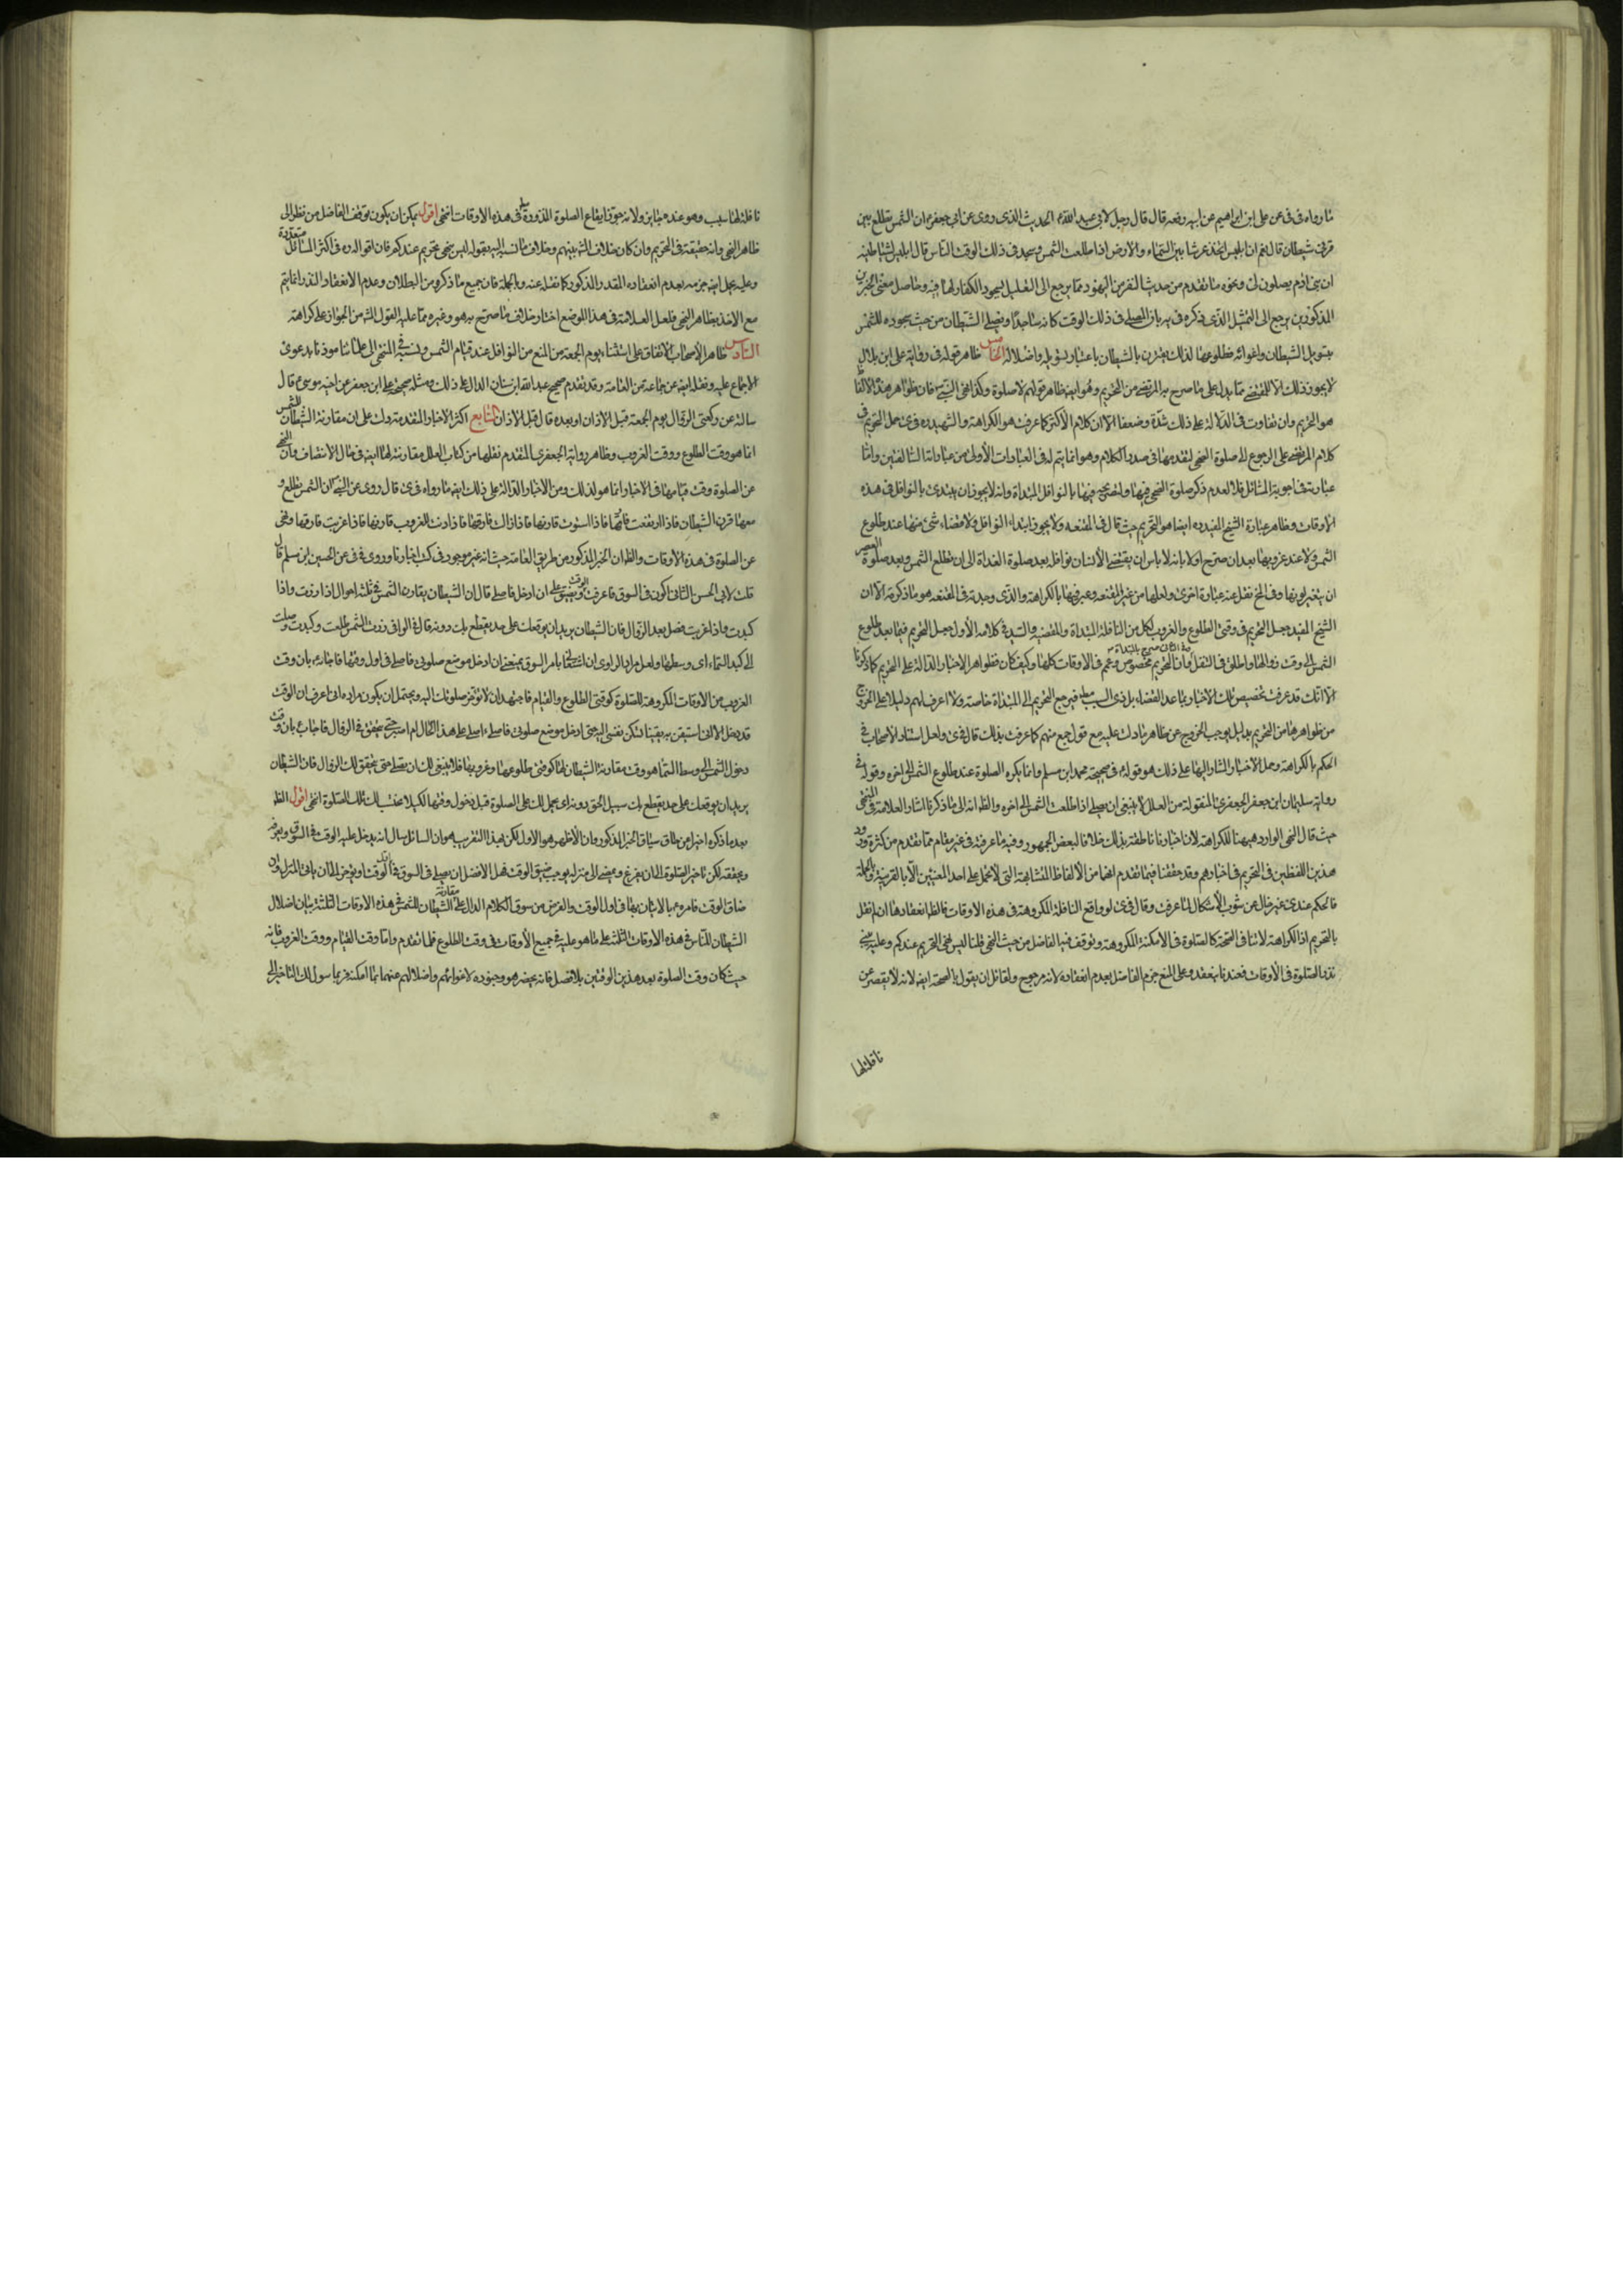 ما رواه فى فى عن على ابن ابراهيم عن ابيه رفعه قال قال رجل لابى عبد الله ع الحديث الذى روى عن ابى جعفر ع ان الشمس تطلع بين
قرنى شيطان قال نعم ان ابليس اتخذ عرشا بين السماء والارض اذا طلعت الشمس وسجد فى ذلك الوقت الناس قال ابليس لشياطينه
ان بنى ادم يصلون لى ونحوه ما تقدم من حديث النفر من اليهود مما يرجع الى التعليل بسجود الكفار لها فيه وحاصل معنى الخبرين
المذكورين يرجع الى التمثيل الذى ذكره فى يه بان المصلى فى ذلك الوقت كانه ساجدا ويصلى الشيطان من حيث سجوده للشمس
بتسويل الشيطان واغوائه فطلوعها لذلك يقترن بالشيطان باعتبار تسويله واضلاله الخامس ظاهر قوله فى رواية على ابن بلال
لا يجوز ذلك الا للمقتضى مما يدل على ما صرح به المرتضى من التحريم وهو ايضا ظاهر قولهم لا صلوة وكذا نهى النبى ص فان ظواهر هذه الالفاظ
هو التحريم وان تفاوت فى الدلالة على ذلك شدة وضعفا الا ان كلام الاكثر كما عرفت هو الكراهة والشهيد ره فى ى حمل التحريم فى
كلام المرتضى على الرجوع الى صلوة الضحى لتقدمها فى صدر الكلام وهو انما يتم له فى العبارات الأولى من عباراته السالفتين واما
عبارته فى اجوبة المسائل فلا لعدم ذكر صلوة الضحى فيها ولتصريحه فيها بالنوافل المبتداة وانه لا يجوز ان يبتدئ بالنوافل فى هذه
الاوقات وظاهر عبارة الشيخ المفيد ره ايضا هو التحريم حيث قال فى المقنعه ولا يجوز ابتداء النوافل ولا قضاء شئ منها عند طلوع
الشمس ولا عند غروبها بعد ان صرح اولا بانه لا باس ان يقضى الانسان نوافله بعد صلوة الغداة الى ان تطلع الشمس وبعد صلوة العصر
ان يتغير لونها وفى لخ نقل عنه عبارة اخرى ولعلها من غير المقنعه وعبر فيها بالكراهة والذى وجدته فى المقنعه هو ما ذكرته الا ان
الشيخ المفيد جعل التحريم فى وقتى الطلوع والغروب لكل من النافلة المبتداة والمقضيه والسيد فى كلامه الأول جعل التحريم فيما بعد طلوع
الشمس الى وقت زوالها واطلق فى التنفل
الا انك قد عرفت تخصيص تلك الاخبار بما عدا القضاء بل ذى السبب مطلقا فيرجع التحريم الى المبتداة خاصة ولا اعرف لهم دليلا على الخروج
من ظواهرها من التحريم بدليل يوجب الخروج عن ظاهر ما دلت عليه مع قول جمع منهم كما عرفت بذلك قال فى ى ولعل استناد الاصحاب فى
الحكم بالكراهة وحمل الأخبار المشار اليها على ذلك هو قوله ع فى صحيحة محمد ابن مسلم وانما يكره الصلوة عند طلوع الشمس الى اخره وقوله فى
رواية سليمان ابن جعفر الجعفرى المنقولة من العلل لا ينبغى ان يصلى اذا طلعت الشمس الى اخره والظ انه الى ما ذكرنا اشار العلامة فى المنتهى
حيث قال النهى الوارد ههنا للكراهة لان اخبارنا ناطقة بذلك خلافا لبعض الجمهور وفيه ما عرفته فى غير مقام مما تقدم من كثرة ورود
هذين اللفظين فى التحريم فى اخبارهم وقد حققنا فيما تقدم انهما من الألفاظ المتشابهة التى لا تحمل على احد المعنيين الا بالقرينة وبالجملة
فالحكم عندى غير خال عن شوب الاشكال لما عرفت وقال فى ى لو واقع النافلة المكروهة فى هذه الاوقات فالظ انعقادها ان لم نقل
بالتحريم اذ الكراهة لا تنافى الصحة كالصلوة فى الامكنة المكروهة وتوقف فيه الفاضل من حيث النهى قلنا ليس نهى التحريم عندكم وعليه يبنى
نذر الصلوة فى الأوقات فعندنا ينعقد وعلى المنع جزم الفاضل بعدم انعقاده لانه مرجوح ولقائل ان يقول بالصحة ايضا لانه لا يقصر عن
نافلتلها
نافلة لها سبب وهو عنده جايز ولانه جوز ايقاع الصلوة المنذورة مطلقا فى هذه الاوقات انتهى اقول يمكن ان يكون توقف الفاضل من نظر الى
ظاهر النهى وانه حقيقة فى التحريم وان كان خلاف المشهور بينهم وخلاف ما نسب اليه بقوله ليس نهى تحريم عندكم فان اقواله ره فى اكثر المسائل متعددة
وعليه يحمل ايضا جزمه بعدم انعقاده المقدر والمذكور كما نقله عنه وبالجملة فان جميع ما ذكره من البطلان وعدم الانعقاد والنذر انما يتم
مع الاخذ بظاهر النهى فلعل العلامة فى هذا الموضع اختار خلاف ما صرح به هو وغيره مما عليه القول المشهور من الجواز على كراهة
السادس ظاهر الأصحاب الاتفاق على استثناء يوم الجمعة من المنع من النوافل عند قيام الشمس ونسبه فى المنتهى الى علمائنا موذنا بدعوى
الاجماع عليه ونقله ايضا عن جماعة من العامة وقد تقدم صحيح عبد الله ابن سنان الدال على ذلك ومثله صحيح على ابن جعفر عن اخيه موسى ع قال
سالته عن ركعتى الزوال يوم الجمعة قبل الاذان او بعده قال قبل الاذان السابع اكثر الاخبار المتقدمة دلت على ان مقارنة الشيطان للشمس
انما هو وقت الطلوع ووقت الغروب وظاهر رواية الجعفرى المتقدم نقلها من كتاب العلل مقارنته لها ايضا فى حال الانتصاف وان النهى
عن الصلوة وقت قيامها فى الاخبار انما هو لذلك ومن الاخبار الدالة على ذلك ايضا ما رواه فى ى قال روى عن النبى ص ان الشمس تطلع و
معها قرن الشيطان فاذا ارتفعت فارقها فاذا استوت قارنها فاذا زالت فارقها فاذا دنت للغروب قارنها فاذا غربت فارقها ونهى
عن الصلوة فى هذه الاوقات والظ ان الخبر المذكور من طريق العامة حيث انه غير موجود فى كتب اخبارنا وروى فى فى عن الحسين ابن مسلم قال
قلت لابى الحسن الثانى اكون فى السوق فاعرف الوقت ويضيق على ان ادخل فاصلى قال ان الشيطان يقارن الشمس فى ثلثة احوال اذا ذرت واذا
كبدت واذا غربت فصل بعد الزوال فان الشيطان يريد ان يوقعك على حد يقطع بك دونه قال فى الوافى ذرت الشمس طلعت وكبدت وصلت
الى كبد السماء اى وسطها ولعل مراد الراوى ان اشتغالى بامر السوق يمنعنى ان ادخل موضع صلوتى فاصلى فى اول وقتها فاجابه ع بان وقت
الغروب من الاوقات المكروهة للصلوة كوقتى الطلوع والقيام فاجتهد ان لا تؤخر صلوتك اليه ويحتمل ان يكون مراده انى اعرف ان الوقت
قد دخل الا انى لم استيقن به يقينا تسكن نفسى اليه حتى ادخل موضع صلوتى فاصلى ءاصلى على هذه الحال ام اصبر حتى يتحقق لى الزوال فاجاب ع بان وقت
دخول الشمس الى وسط السماء هو وقت مقارنة الشيطان لها كوقتى طلوعها وغروبها فلا ينبغى لك ان تصلى حتى يتحقق لك الزوال فان الشيطان
يريد ان يوقعك على حد يقطع بك سبيل الحق دونه اى يحمل لك على الصلوة قبل دخول وقتها لكيلا تحتسب لك تلك الصلوة انتهى اقول الظ
بعد ما ذكره اخيرا من نطاق سياق الخبر المذكور وان الأظهر هو الاول لكن بهذا التقريب وهو ان السائل سال انه يدخل عليه الوقت فى السوق ويعرفه
ويحققه لكن تاخير الصلوة الى ان يفرغ ويمضى الى منزله يوجب ضيق الوقت فهل الافضل ان يصلى فى السوق فى اول الوقت او يؤخر الى ان ياتى المنزل وان
ضاق الوقت فامره ع بالاتيان بها فى اول الوقت والغرض من سوق الكلام الدال على مقارنة الشيطان للشمس فى هذه الاوقات الثلثة بيان اضلال
الشيطان للناس فى هذه الاوقات الثلثة على ما هو عليه فى جميع الأوقات فى وقت الطلوع فلما تقدم واما وقت القيام ووقت الغروب فانه
حيث كان وقت الصلوة بعد هذين الوقتين بلا فصل فانه يحضر هو وجنوده لاغوائهم واضلالهم عنهما بما امكنه فربما سول لك التاخير الى